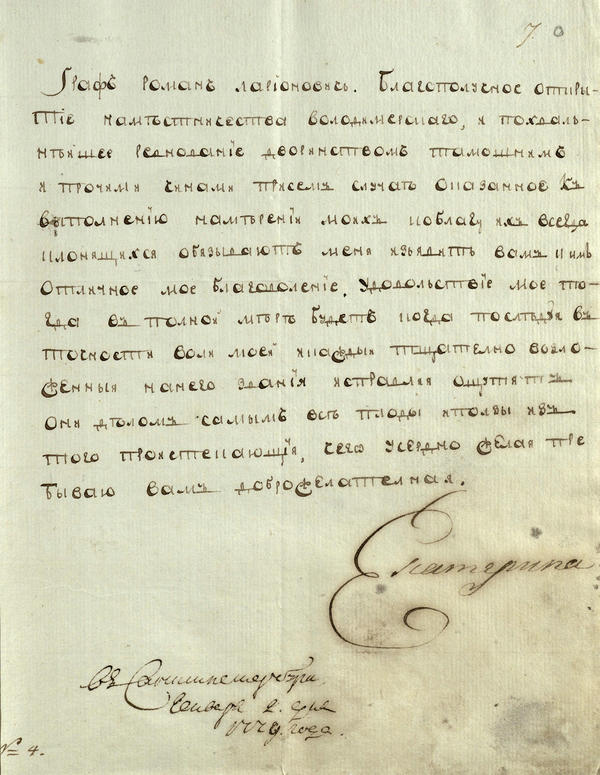 7.
Графъ романъ ларiоновичь. Благополучное откры-
тiе намѣстничества володимерскаго, и похваль-
нѣйшее ревнованiе дворянствомъ тамошнимъ
и прочими чинами присемъ случаѣ оказанное къ
выполненiю намѣренiй моихъ коблагу ихъ всегда
клонящихся обязываютъ меня изъявить вамъ и имъ
отличное мое благоволенiе. Удовольствiе мое то-
гда въ полной мѣрѣ будетъ когда послѣдуя въ
точности воли моей икаждый тщателно возло-
женныя нанего званiя исправляя ощутятъ
они дѣломъ самымъ всѣ плоды иползы изъ
того проистекающiя, чего усердно желая пре
бываю вамъ доброжелателная.
Екатерина
въ Санктпетербурге.
Генваря 2. дня
1779. года.
№ 4.